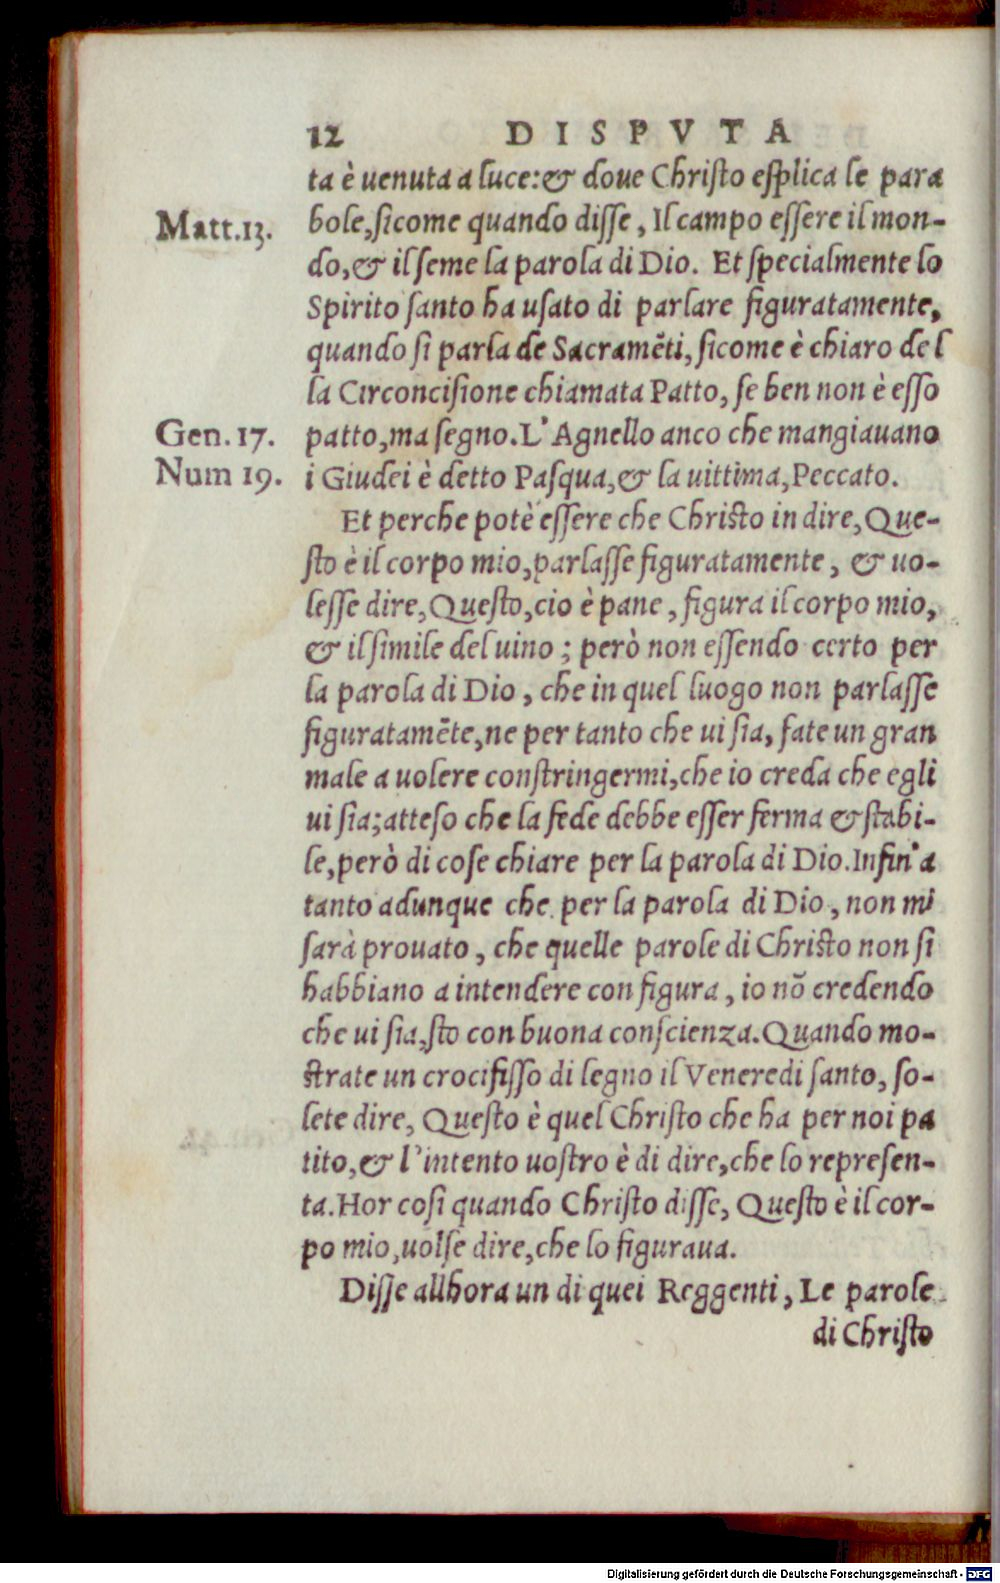 12 DISPVTA
ta è uenuta a luce:& doue Christo esplica le para
Matt.13.
bole,sicome quando disse, Il campo essere il mon-
do,& il seme la parola di Dio. Et specialmente lo
Spirito santo ha usato di parlare figuratamente,
quando si parla de Sacramẽti, sicome è chiaro del
la Circoncisione chiamata Patto, se ben non è esso
Gen. 17.
patto,ma segno.L'Agnello anco che mangiauano
Num 19.
i Giudei è detto Pasqua,& la uittima,Peccato.
Et perche potè essere che Christo in dire,Que-
sto è il corpo mio,parlasse figuratamente, & uo-
lesse dire,Questo,cio è pane, figura il corpo mio,
& il simile del uino; però non essendo certo per
la parola di Dio, che in quel luogo non parlasse
figuratamẽte,ne per tanto che ui sia, fate un gran
male a uolere constringermi,che io creda che egli
ui sia;atteso che la fede debbe esser ferma & stabi-
le,però di cose chiare per la parola di Dio.Infin'a
tanto adunque che per la parola di Dio, non mi
sarà prouato, che quelle parole di Christo non si
habbiano a intendere con figura, io nõ credendo
che ui sia,sto con buona conscienza.Quando mo-
strate un crocifisso di legno il Veneredi santo, so-
lete dire, Questo è quel Christo che ha per noi pa
tito,& l'intento uostro è di dire,che lo represen-
ta.Hor cosi quando Christo disse, Questo è il cor-
po mio,uolse dire,che lo figuraua.
Disse allhora un di quei Reggenti, Le parole
di Christo
Digitalisierung gefördert durch die Deutsche Forschungsgemeinschaft - DFG